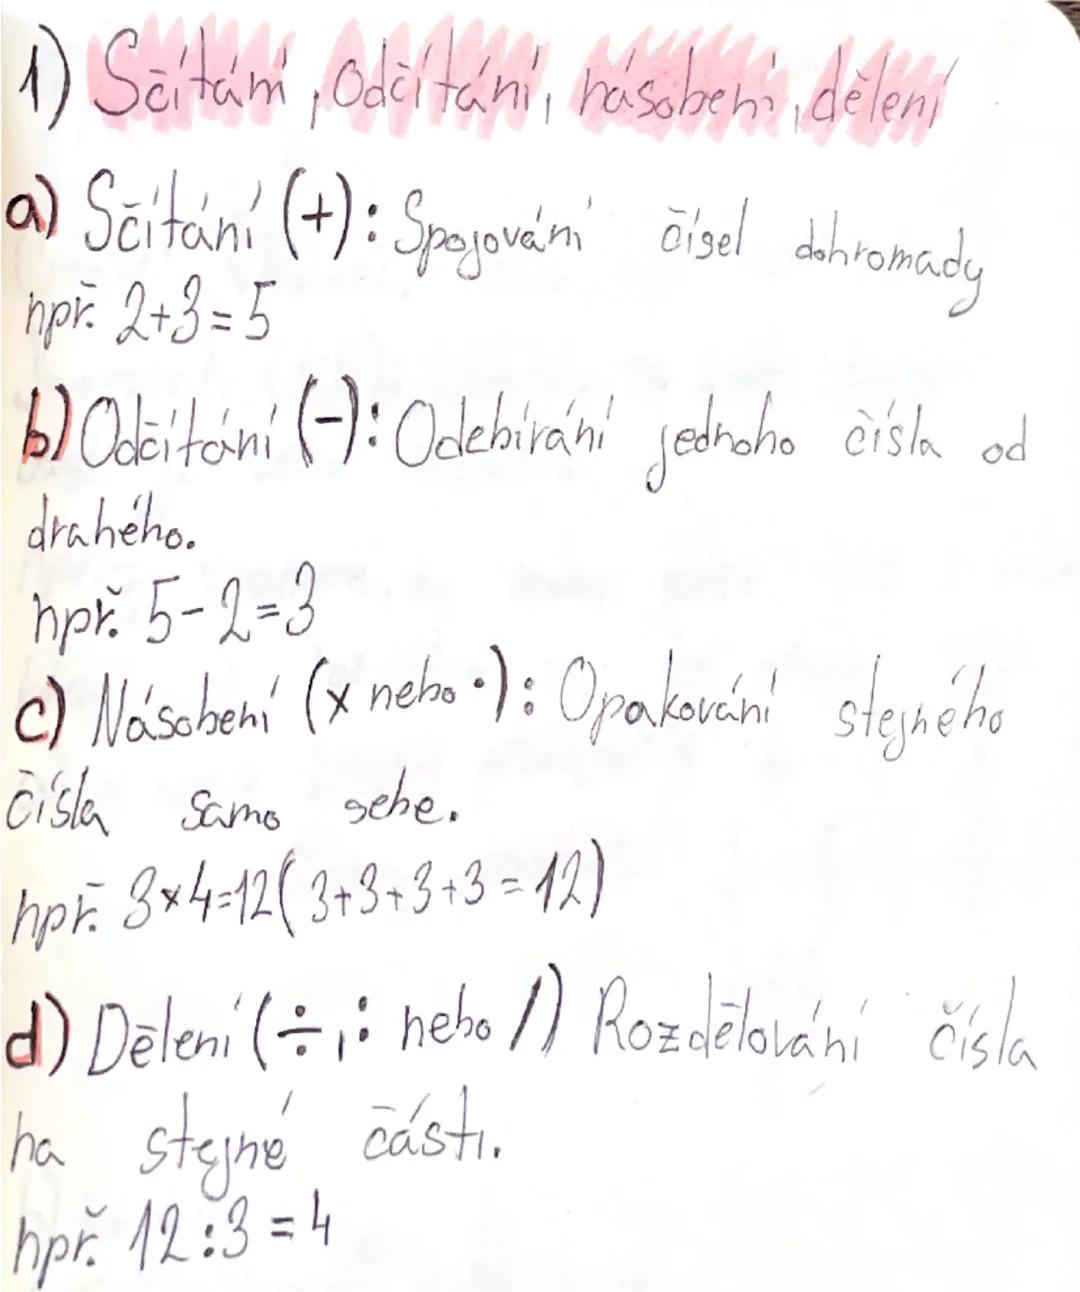 1) Sčítání, odčítání, násobení, dělení
a) Sčítání (+): Spojování čísel dohromady
npř. 2+3=5
b) Odčítání (-): Odebírání jednoho čísla od
drahého.
npř. 5-2=3
c) Násobení (x nebo •): Opakování stejného
čísla samo sebe.
npř. 3x4=12(3+3+3+3=12)
d) Dělení (÷,: nebo /) Rozdělování čísla
na stejné části.
npř. 12:3=4